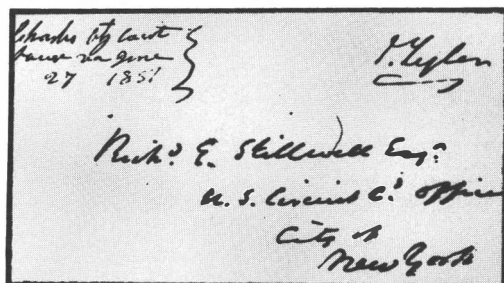 Charles City Court
house va June
27 1851
J. Tyler
Richd E. Stillwell Esqr.
U.S. Circuit Ct office
City of
New York